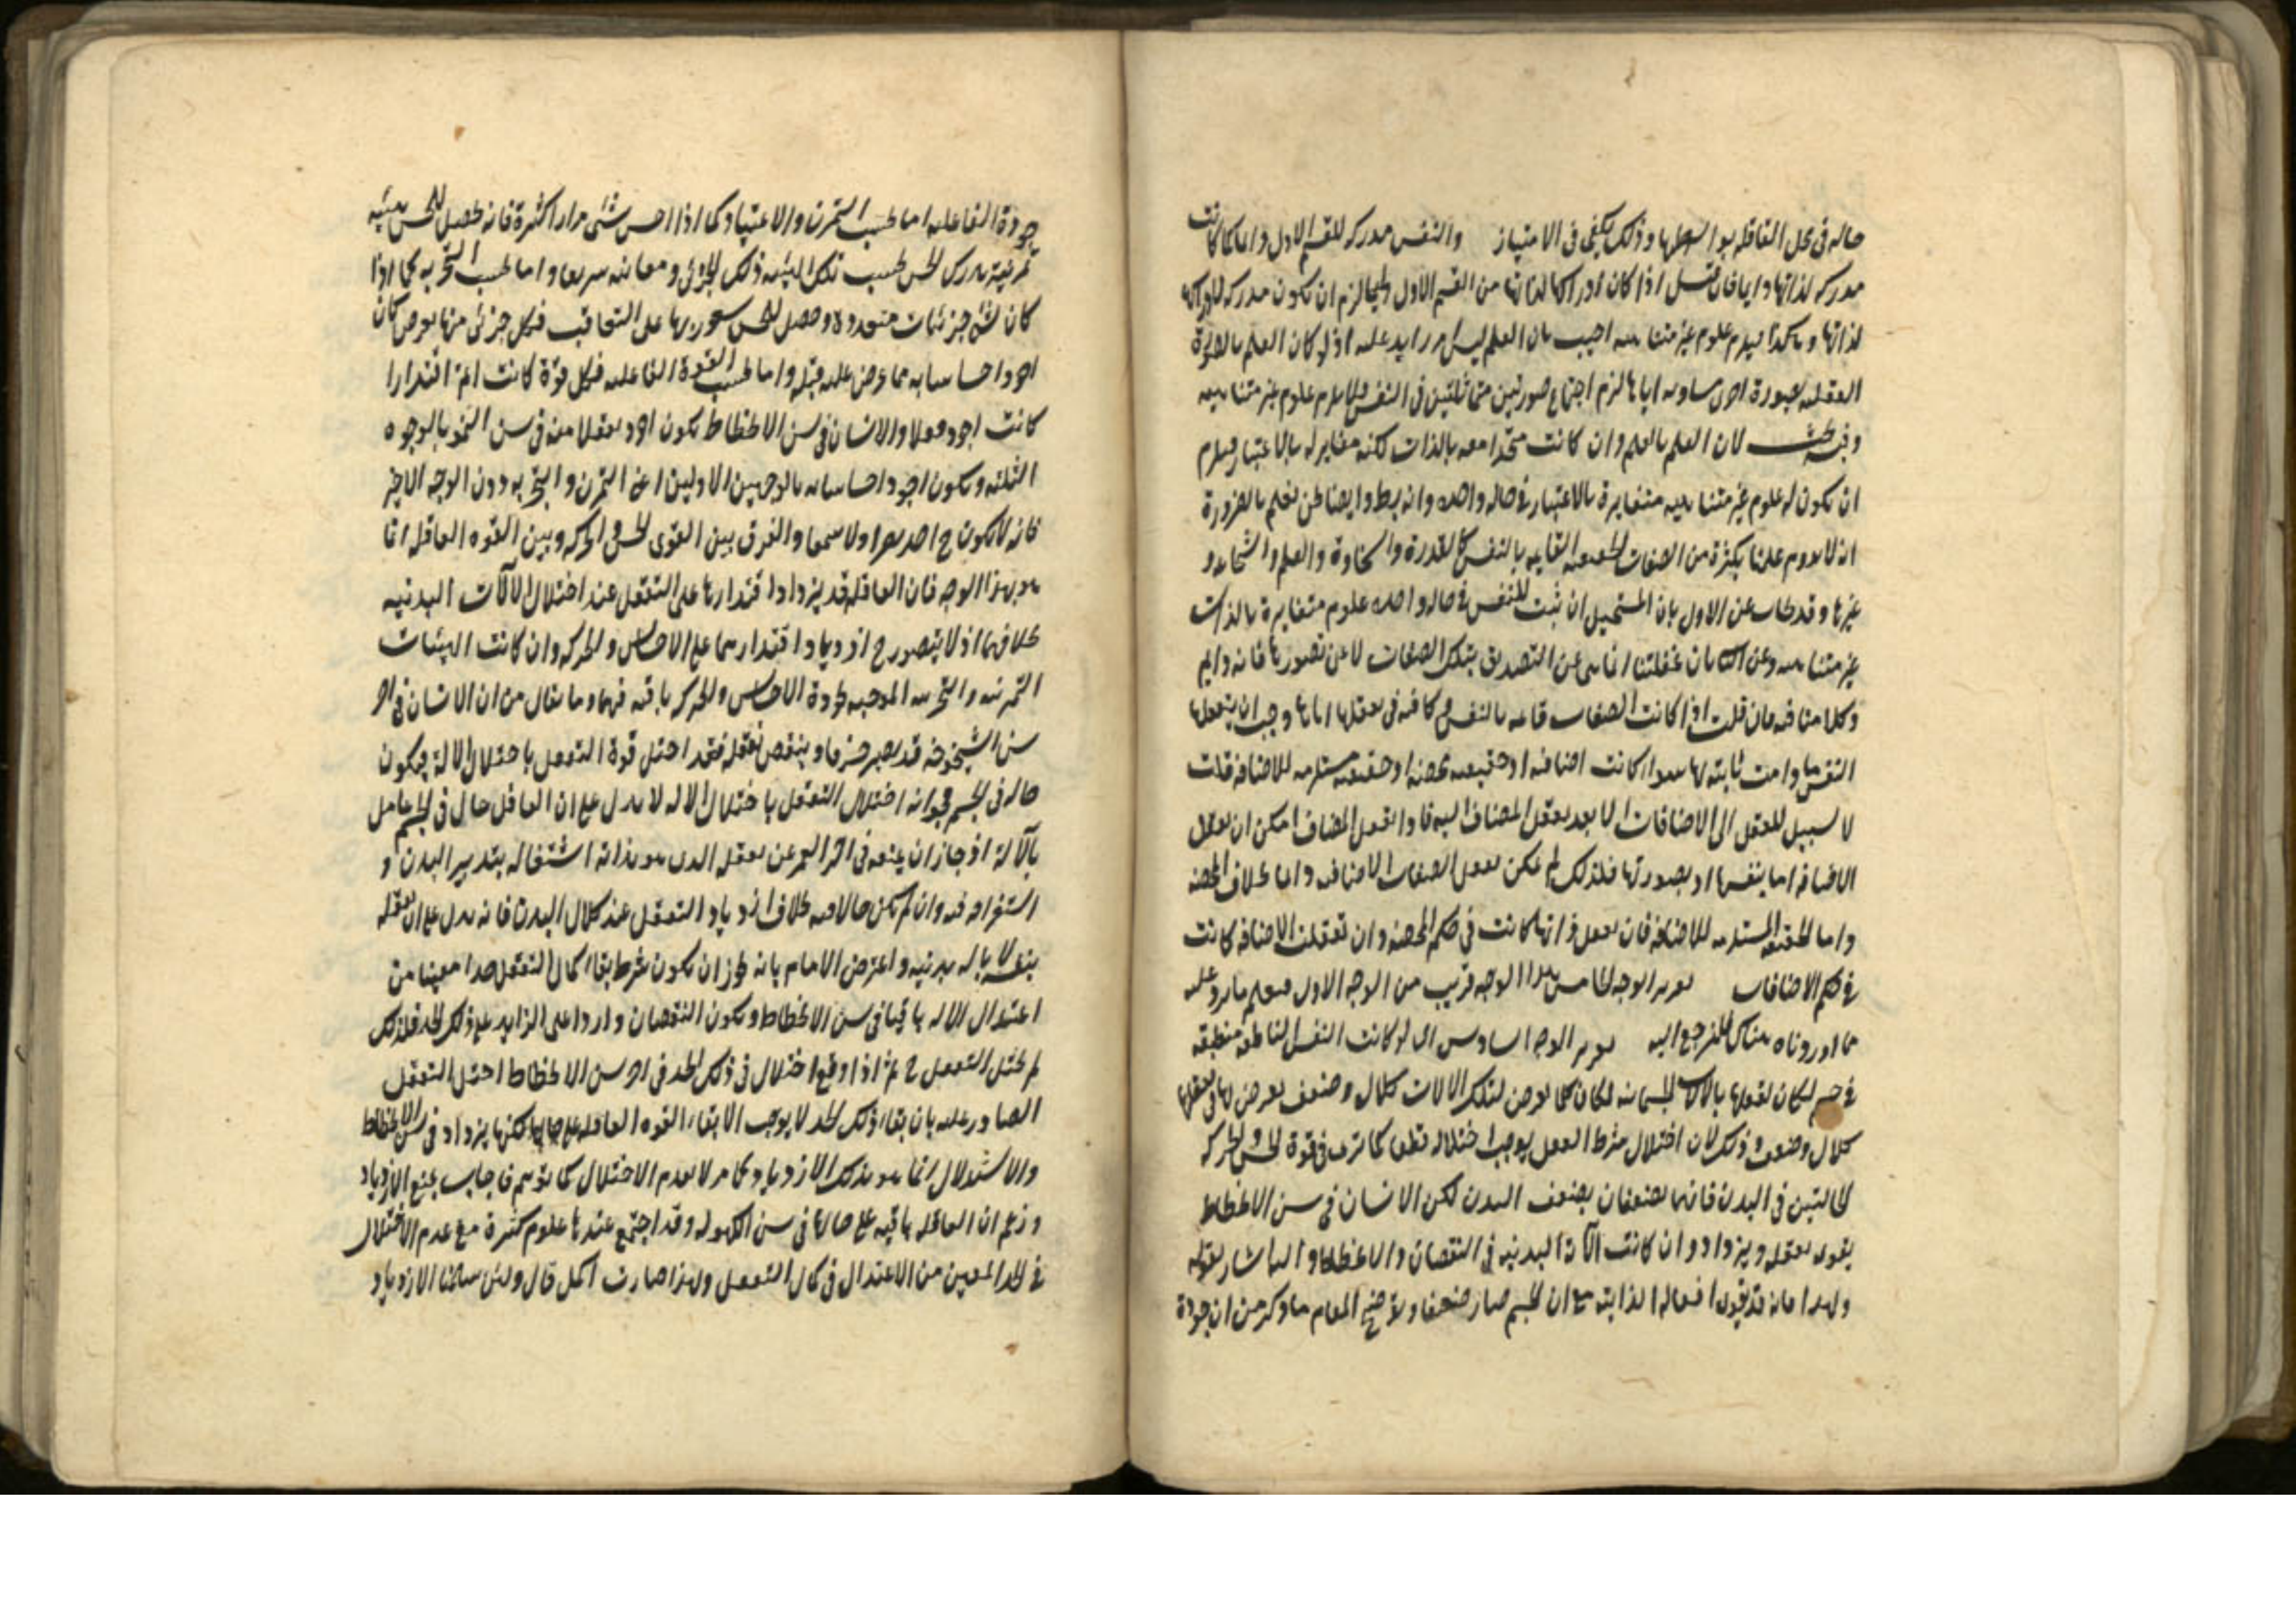 حاله فى محل العاقله بواسطتها وذلك يكفى فى الامتياز والنفس مدركه للقسم الاول دائما كما كانت
مدركه لذاتها دايما فان قيل اذا كان ادراكها لذاتها من القسم الاول دايما لزم ان تكون مدركه لادراكها
لذاتها وهكذا فيلزم علوم غير متناهيه اجيب بان العلم ليس امر زايد عليه اذ لو كان العلم بالصورة
العقليه بصورة اخرى مساويه اياها لزم اجتماع صورتين متماثلتين فى النفس فلا يلزم علوم غير متناهيه
وفيه بحث لان العلم بالعلم وان كانت متحدا معه بالذات لكنه مغاير له بالاعتبار فيلزم
ان يكون له علوم غير متناهيه متغايرة بالاعتبار فى حاله واحده وانه بط وايضا نحن نعلم بالضرورة
انه لا يدوم علمنا بكثرة من الصفات الحقيقيه القايمه بالنفس كالقدرة والسخاوة والعلم والشجاعه و
غيرها وقد يجاب عن الاول بان المستحيل ان يثبت للنفس فى حاله واحده علوم متغايرة بالذات
غير متناهيه وعن الثانى بان غفلتنا انما هى عن التصديق بتلك الصفات لا عن تصورها فانه دايم
وكلامنا فيه فان قلت اذا كانت الصفات قايمه بالنفس وكافيه فى تعقلها اياها وجب ان يتعقلها
النفس ما دامت ثابته لها سواء كانت اضافيه او حقيقيه محضه او حقيقيه مستلزمه للاضافه قلت
لا سبيل للعقل الى الاضافات الا بعد تعقل المضاف اليه فاذا تعقل المضاف امكن ان يعقل
الاضافه اما بنفسها او بصورتها فلذلك لم يمكن تعقل الصفات الاضافيه دائما بخلاف المحضه
واما الحقيقيه المستلزمه للاضافه فان تعقل ذاتها كانت فى حكم المحضه وان تعقلت الاضافه كانت
فى حكم الاضافات تقرير الوجه الخامس هذا الوجه قريب من الوجه الاول فيعلم ما يرد عليه
مما اوردناه هناك فليرجع اليه تقرير الوجه السادس انه لو كانت النفس الناطقه منطبعه
فى جسم لكان تعقلها بالالات الجسمانيه لكان كلما يعرض لتلك الالات كلال وضعف يعرض لها فى تعقلها
كلال وضعف وذلك لان اختلال شرط العقل يوجب اختلاله قطعا كما ترى فى قوة الحس والحركه
الحالتين فى البدن فانهما يضعفان بضعف البدن لكن الانسان فى سن الانحطاط
يقوى تعقله ويزداد وان كانت الآلة البدنيه فى النقصان والانحطاط واليه اشار بقوله
ولهذا فانه قد تقوى افعاله الذاتيه مع ان الجسم صار ضعفا وتوضيح المقام ما ذكر من ان جودة
جودة الفاعليه اما بحسب التمرن والاعتياد كما اذا احس شئ مرارا كثيرة فانه يحصل للحس هيئه
تمرنية يدرك الحس بحسب تلك الهيئه ذلك الجزئى ومعانيه سريعا واما بحسب التجربه كما اذا
كان لشئ جزئيات متعدده وحصل للحس شعور بها على التعاقب فبكل جزئى منها يعرض كان
اجود احساسا به مما عرض عليه قبله واما بحسب القوة الفاعليه فبكل قوة كانت اتم اقتدارا
كانت اجود فعلا والانسان فى سن الانحطاط يكون اجود تعقلا منه فى سن النمو بالوجوه
الثلثه ويكون اجود احساسا بالوجهين الاولين اعنى التمرن والتجربه دون الوجه الاخير
فانه لا يكون ح احد بصرا ولا سمعا والفرق بين القوى الحس والحركه وبين القوه العاقله انما
هو بهذا الوجه فان العاقله قد يزداد اقتدارها على التعقل عند اختلال الآلات البدنيه
بخلافهما اذ لا يتصور ح ازدياد اقتدارهما على الاحساس والحركه وان كانت الهيئات
التمرنيه والتجربيه الموجبه لجودة الاحساس والحركه باقيه فيهما وما يقال من ان الانسان فى اخر
سن الشيخوخه قد يصير خرفا وينقص تعقله فقد اختل قوة التعقل باختلال الاله فيكون
حاله فى الجسم فجوابه اختلال التعقل باختلال الاله لا يدل على ان العاقل حال فى الجسم عامل
بالآلة اذ جاز ان يمنعه فى اخر العمر عن تعقله الذى هو بذاته اشتغاله بتدبير البدن و
استغراقه فيه وان لم يكن حالا فيه بخلاف ازدياد التعقل عند كلال البدن فانه يدل على ان تعقله
بنفسه لا باله بدنيه واعترض الامام بانه يجوز ان يكون شرط بقاء كمال التعقل حدا معينا من
اعتدال الاله باقيا فى سن الانحطاط ويكون النقصان واردا على الزايد على ذلك الحد فلذلك
لم يختل التعقل ح ثم اذا وقع اختلال فى ذلك الحد فى اخر سن الانحطاط اختل التعقل
الصادر عليه بان بقاء ذلك الحد لا يوجب الا بقاء القوه العاقله على حالها لكنها يزداد فى سن الانحطاط
والاستدلال انما هو بذلك الازدياد كما مر لا بعدم الاختلال كما توهم فاجاب بمنع الازدياد
وزعم ان العاقله باقيه على حالها فى سن الكهوله وقد اجتمع عندها علوم كثيرة مع عدم الاختلال
فى الحد المعين من الاعتدال فى كمال التعقل ولهذا صارت اكمل قال ولئن سلمنا الازدياد